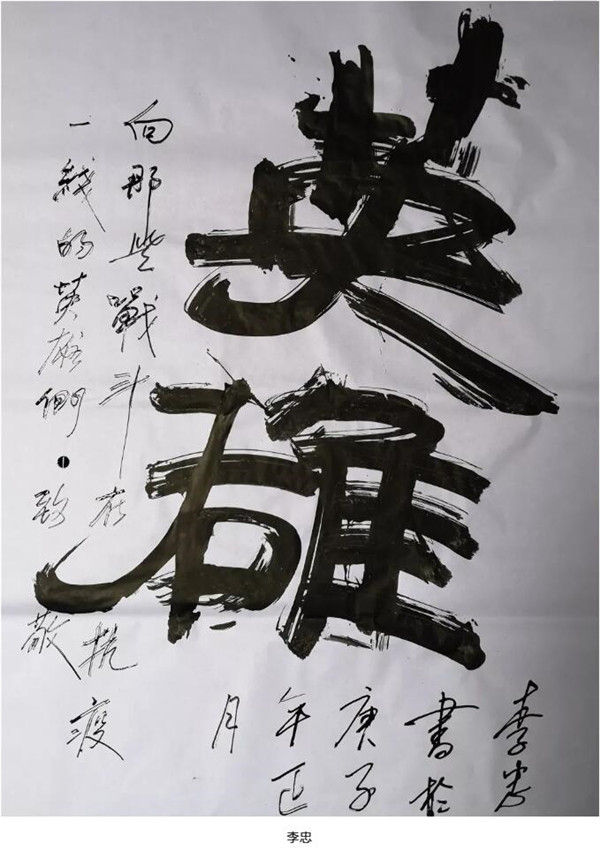 英雄
向那些戰斗在抗疫
一綫的英雄們·致敬
李忠
書於
庚子
年正
月
李忠